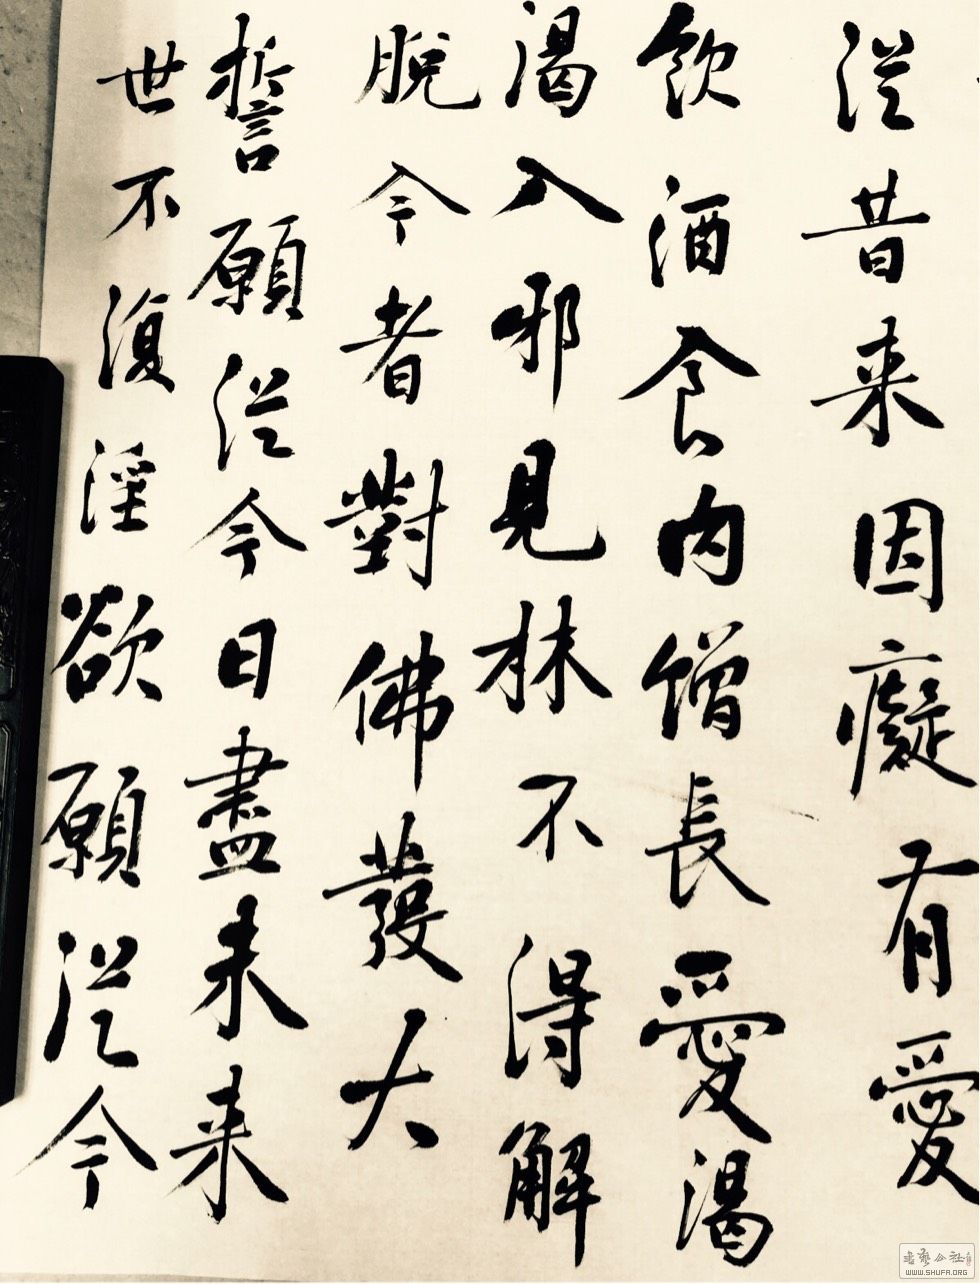 從昔来因癡有愛
飲酒食肉增長愛渴
渴入邪見林不得解
脫今者對佛發大
誓願從今日盡未来
世不復淫欲願從今
WWW.SHUFA.ORG